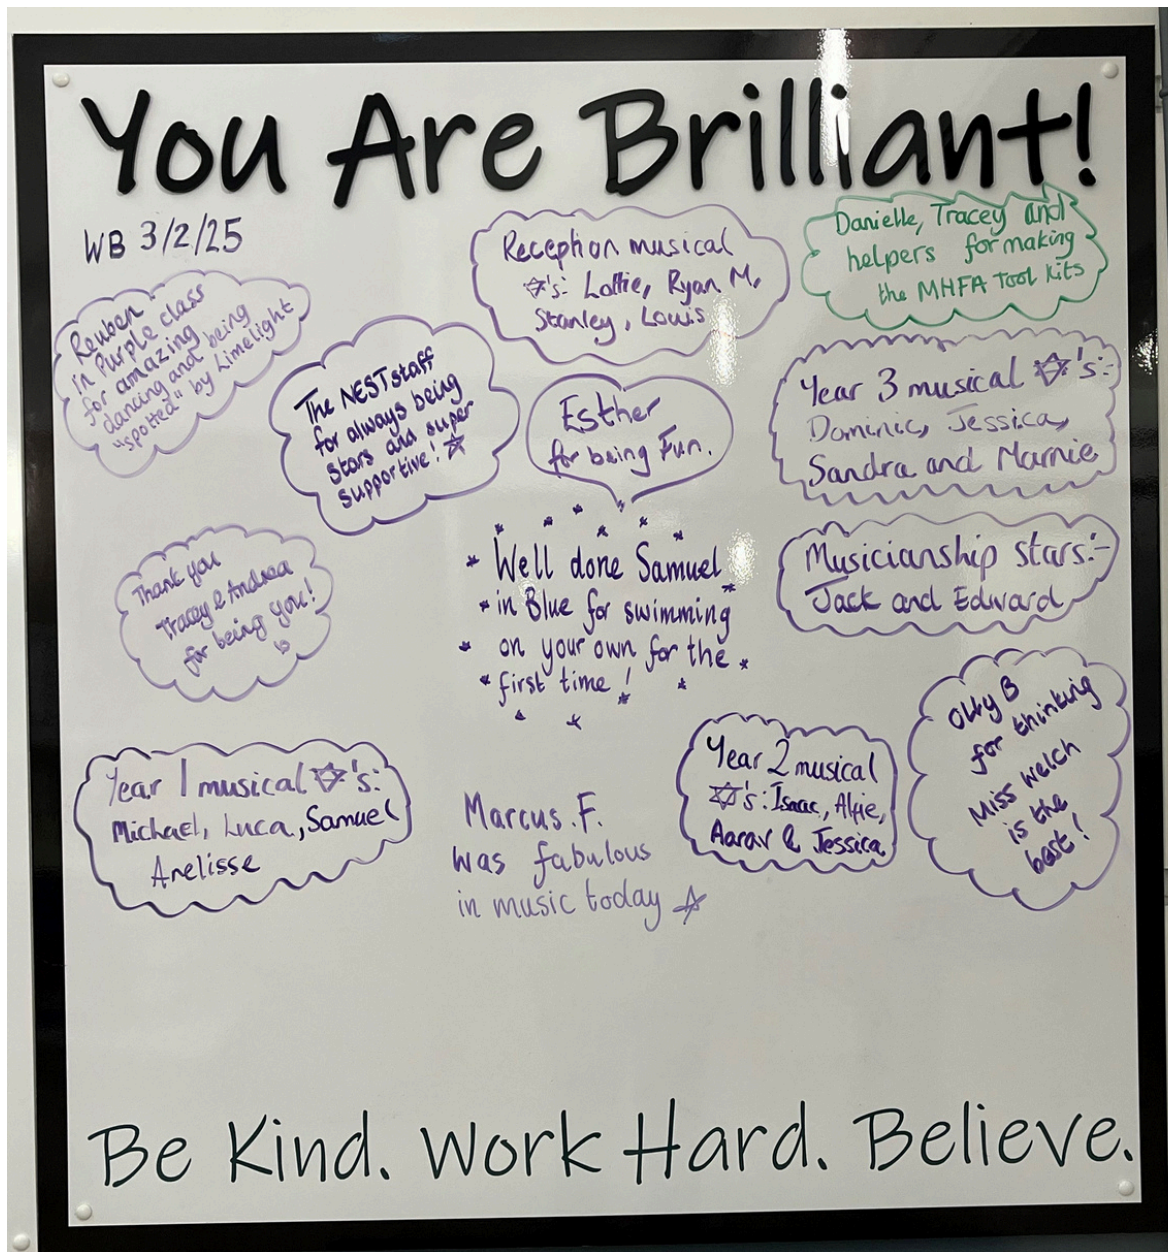 You Are Brilliant!
WB 3/2/25
Reuben
in Purple class
for amazing
dancing and being
"spotted" by Limelight
The NEST staff
for always being
stars and super
supportive! ☆
Reception musical
✡'s: Lottie, Ryan M,
Stanley, Louis
Danielle, Tracey and
helpers for making
the MHFA Tool Kits
Esther
for being Fun.
Year 3 musical ✡'s:-
Dominic, Jessica,
Sandra and Marnie
Thank you
Tracey & Andrea
for being you!
Well done Samuel
in Blue for swimming
on your own for the
first time!
Musicianship stars:-
Jack and Edward
Year 1 musical ✡'s:
Michael, Luca, Samuel
Anelisse
Marcus.F.
was fabulous
in music today ☆
Year 2 musical
✡'s: Isaac, Alfie,
Aarav & Jessica
Olly B
for thinking
Miss Welch
is the
best!
Be Kind. Work Hard. Believe.